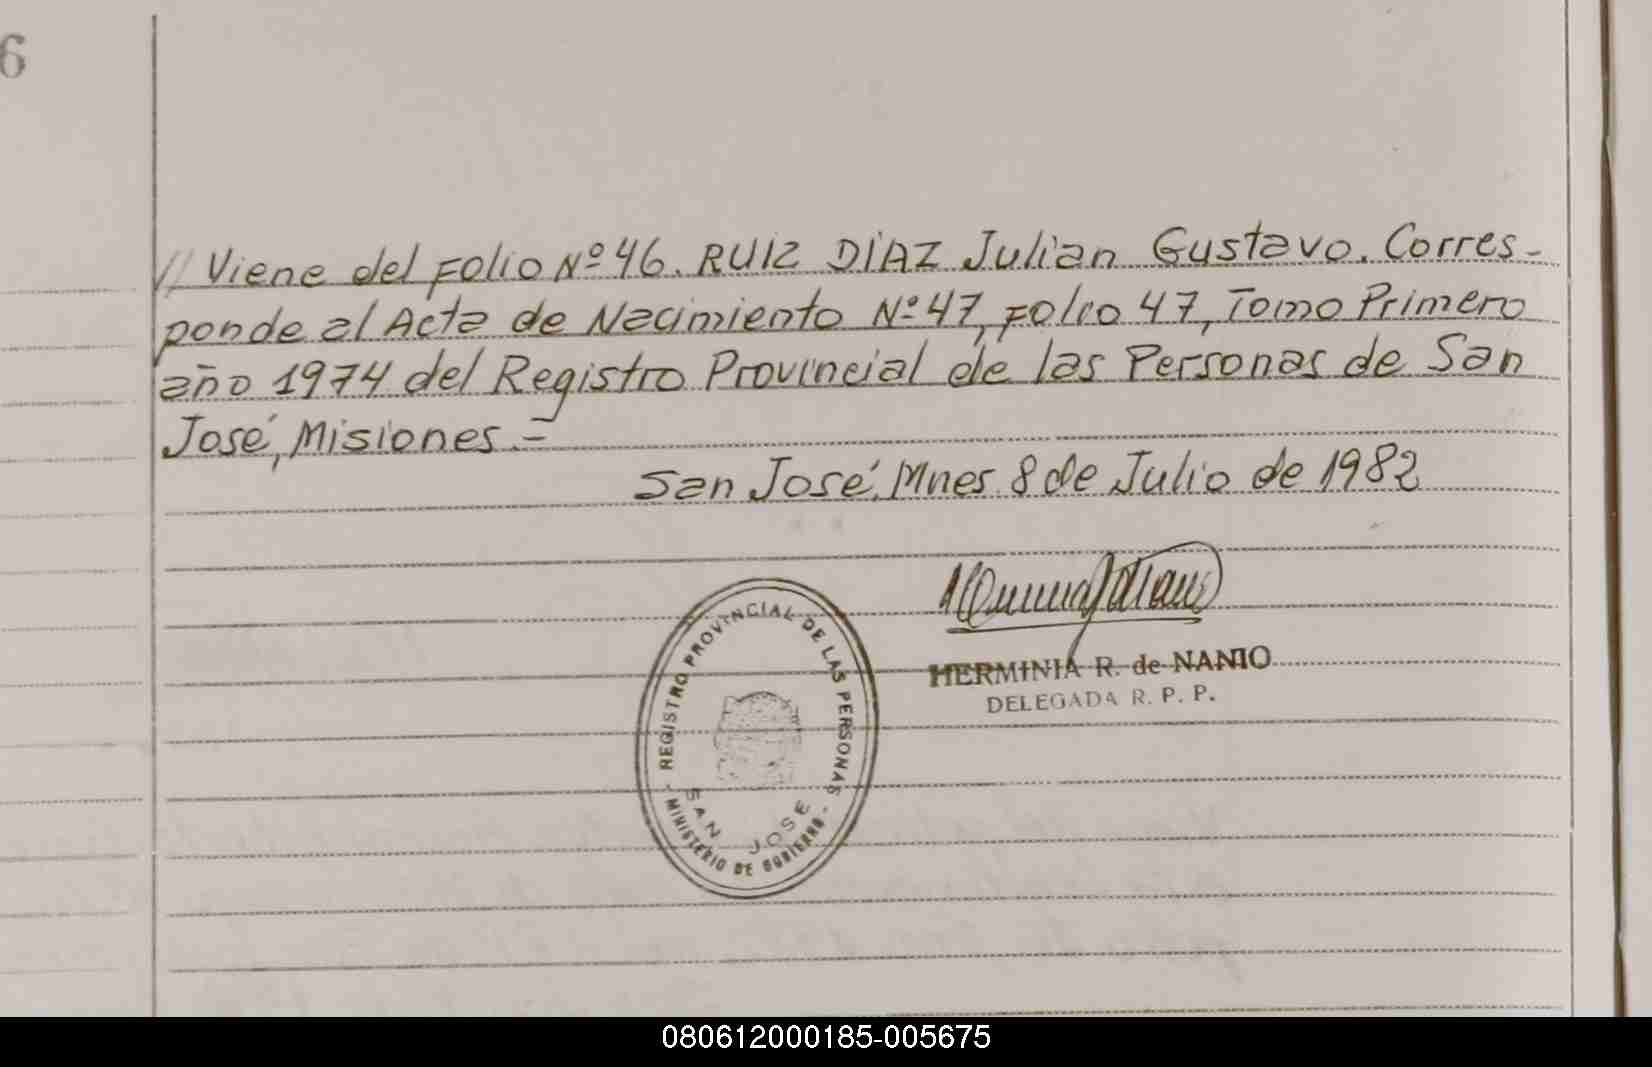 6
// Viene del Folio Nº 46. RUIZ DÍAZ Julian Gustavo. Corres-
ponde al Acta de Nacimiento Nº 47, Folio 47, Tomo Primero
año 1974 del Registro Provincial de las Personas de San
José, Misiones.-
San José, Mnes. 8 de Julio de 1982
HERMINIA R. de NANIO
DELEGADA R. P. P.
REGISTRO PROVINCIAL DE LAS PERSONAS
SAN JOSE
- MINISTERIO DE GOBIERNO -
080612000185-005675